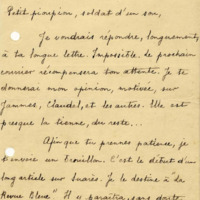 Petit pioupiou, soldat d'un sou,
Je voudrais répondre, longuement,
à ta longue lettre. Impossible. Le prochain
courrier récompensera ton attente. Je te
donnerai mon opinion, motivée, sur
Jammes, Claudel, et les autres. Elle est
presque la tienne, du reste...
Afin que tu prennes patience, je
t'envoie un brouillon. C'est le début d'un
long article sur Suarès. Je le destine à "la
Revue Bleue" Il y paraîtra, sans doute